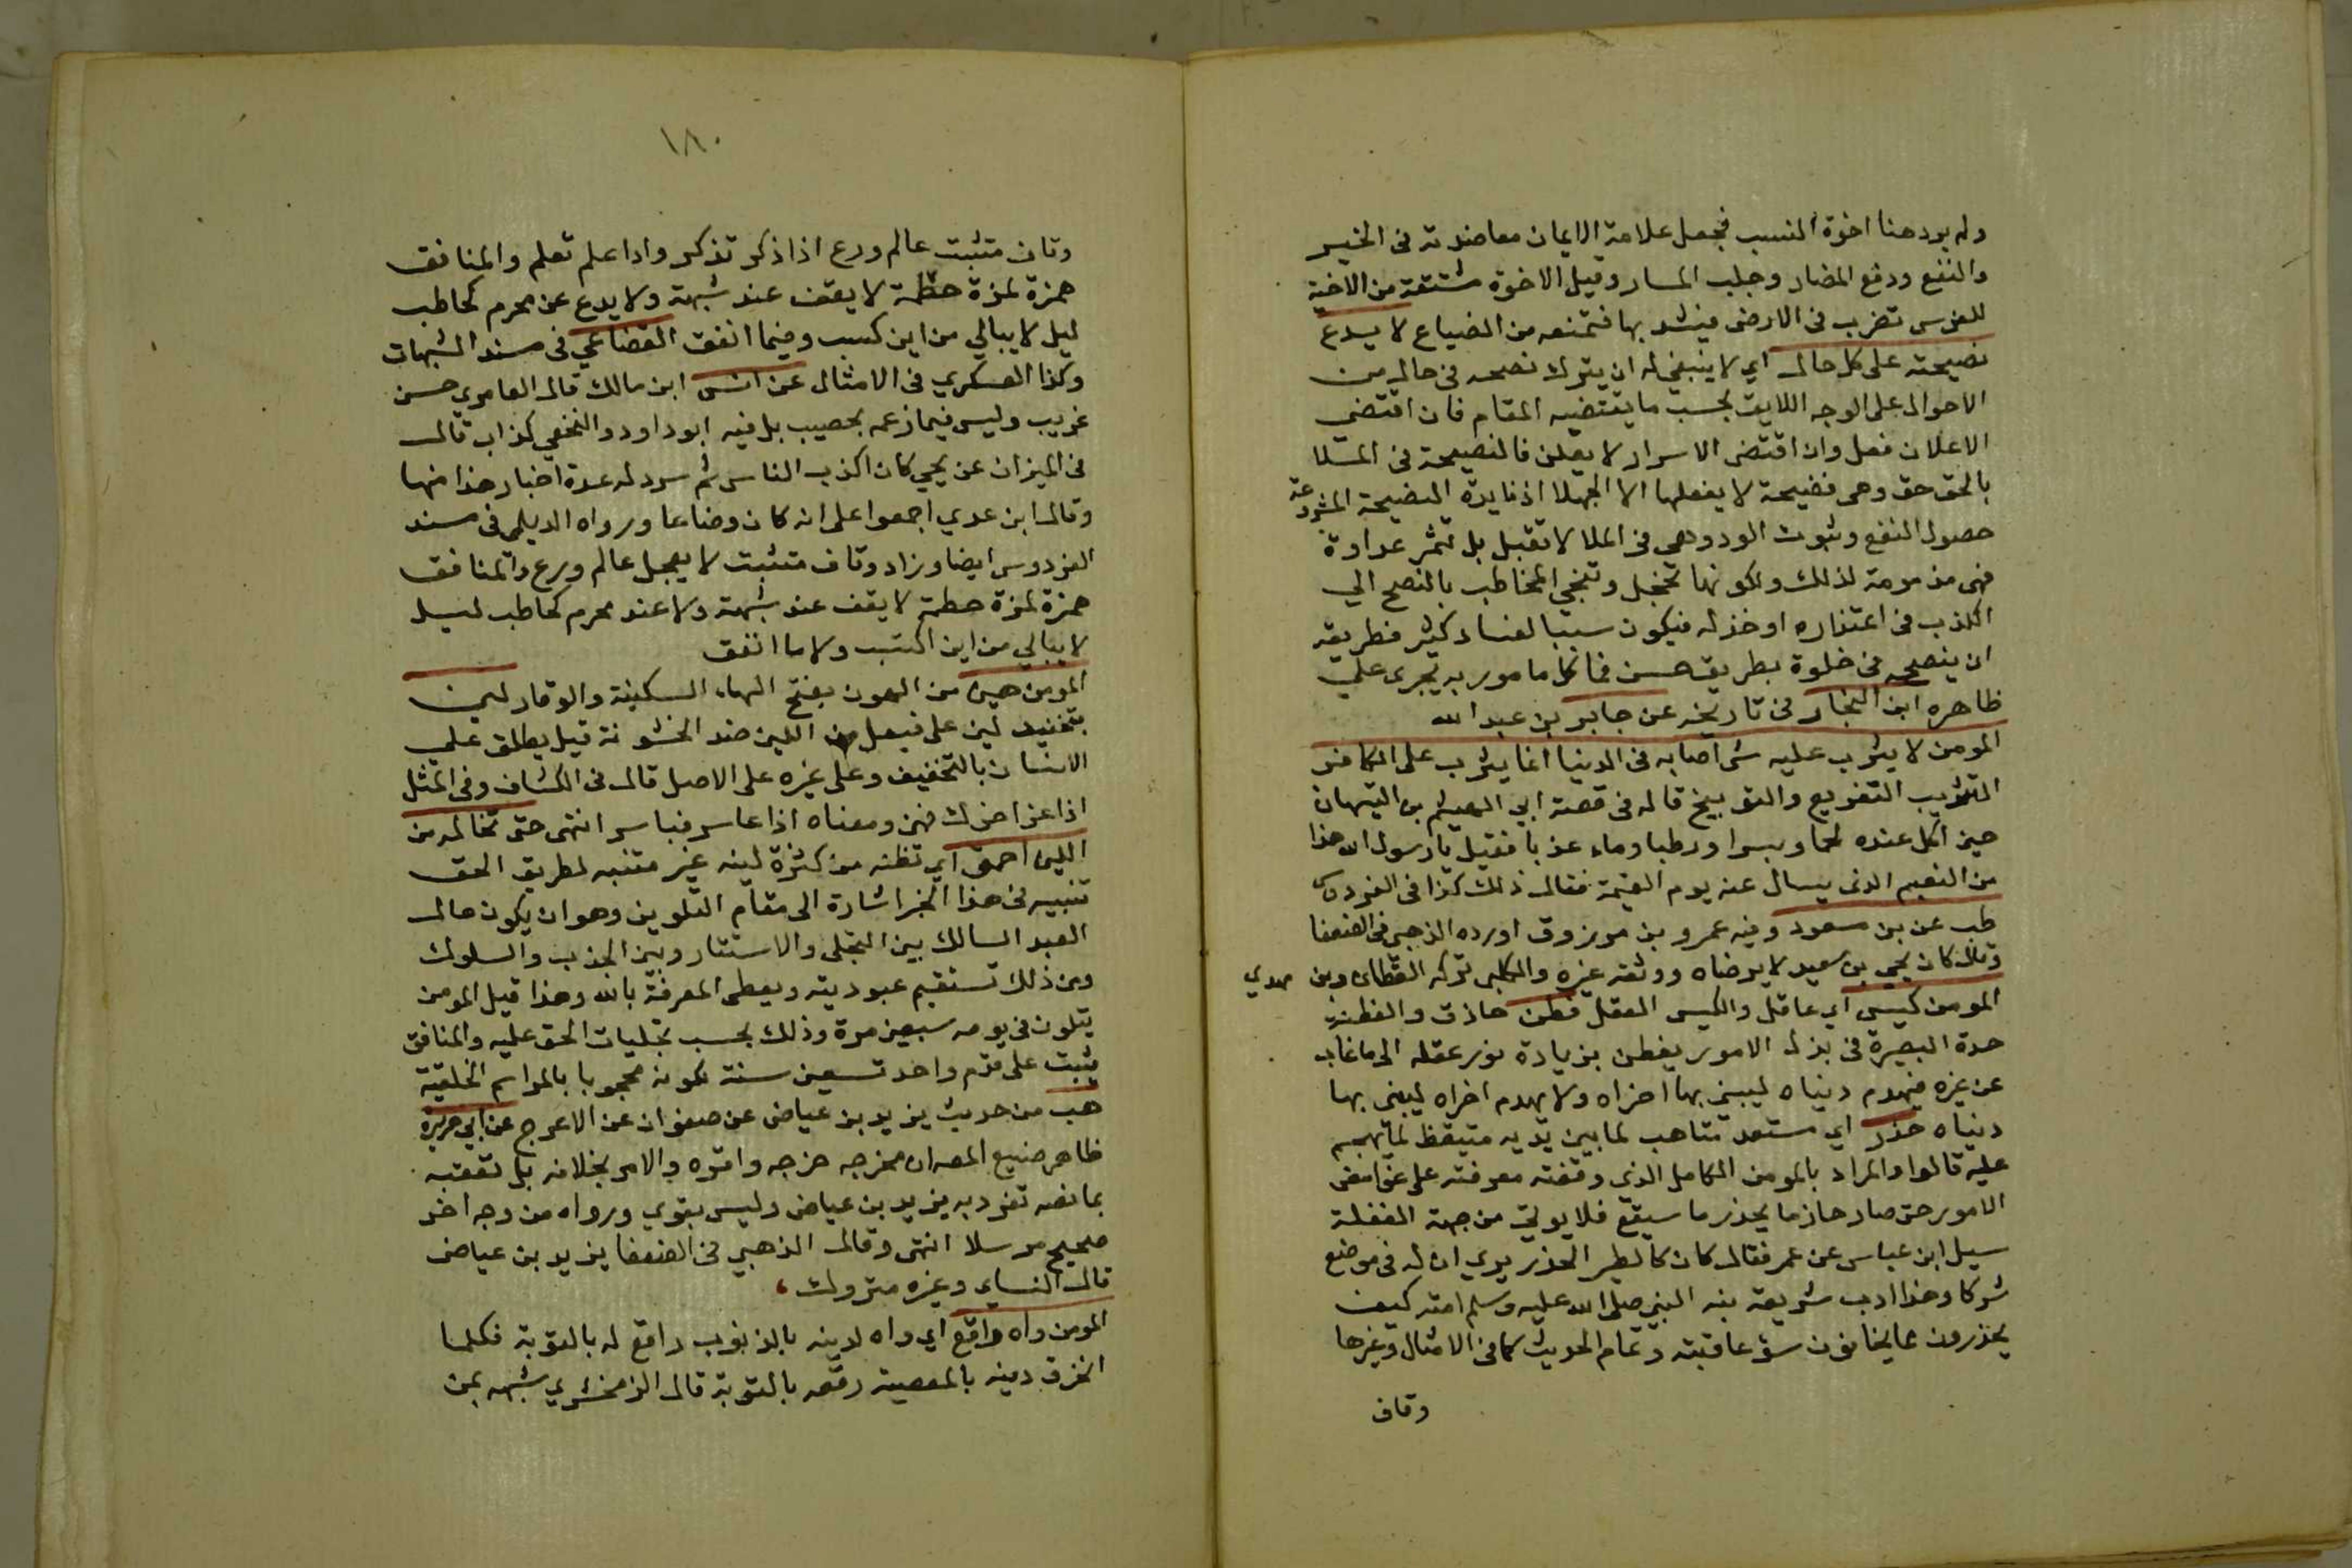 ولم يرد هنا اخوة النسب فجعل علامة الايمان معاضدته فى الخير
والنفع ودفع المضار وجلب المسار وقيل الاخوة مشتقة من الاخية
للفرس تضرب فى الارض فيشد بها فتمنعه من الضياع لا يدع
نصيحته على كل حال اي لا ينبغى له ان يترك نصحه فى حال من
الاحوال على الوجه اللايق بحسب ما يقتضيه المقام فان اقتضى
الاعلان فعل وان اقتضى الاسرار لا يعلن فالنصيحة فى الملا
بالحق حق وهى فضيحة لا يفعلها الا الجهلا اذ فايدة النصيحة المشروعة
حصول النفع وثبوت الود وهى فى الملا لا تقبل بل تثمر عداوة
فهى مذمومة لذلك ولكونها تخجل وتلجى المخاطب بالنصح الي
الكذب فى اعتذاره او خذله فيكون سببا لفساد كثير فطريقه
ان ينصحه فى خلوة بطريق حسن فما كل مامور به يجرى على
ظاهره ابن النجار فى تاريخه عن جابر بن عبد الله
المومن لا يثرب عليه شى اصابه فى الدنيا انما يثرب على الكافر
التثريب التقريع والتوبيخ قاله فى قصة ابي الهيثم بن التيهان
حين اكل عنده لحما وبسرا ورطبا وماء عذبا فقيل يا رسول الله هذا
من النعيم الذى يسال عنه يوم القيمة فقال ذلك كذا فى الفردوس
طب عن بن مسعود وفيه عمرو بن مرزوق اورده الذهبى فى الضعفا
وقال كان يحيى بن سعيد لا يرضاه ووثقه غيره والكلبى تركه القطان وبن مهدي
المومن كيس اي عاقل والكيس العقل فطن حاذق والفطنة
حدة البصيرة فى بذل الامور يفطن بزيادة نور عقله الى ما غاب
عن غيره فيهدم دنياه ليبنى بها اخراه ولا يهدم اخراه ليبنى بها
دنياه حذر اي مستعد متاهب لما بين يديه متيقظ لما يهجم
عليه قالوا والمراد بالمومن الكامل الذى وقفته معرفته على غوامض
الامور حتى صار حازما يحذر ما سيقع فلا يوتى من جهة الغفلة
سيل ابن عباس عن عمر فقال كان كالطير الحذر يري ان له فى موضع
شركا وهذا ادب شريف نبه النبى صلى الله عليه وسلم امته كيف
يحذرون مما يخافون سوء عاقبته وتمام الحديث كما فى الامثال وغيرها
وقاف
١٨٠
وقاف متثبت عالم ورع اذا ذكر تذكر واذا علم تعلم والمنافق
همزة لمزة حطمة لا يقف عند شبهة ولا يدع عن محرم كحاطب
ليل لا يبالي من اين كسب وفيما انفق القضاعي فى مسند الشهاب
وكذا العسكري فى الامثال عن انس ابن مالك قال العامري حسن
غريب وليس فيما زعمه بمصيب بل فيه ابو داود والنخعي كذاب قال
فى الميزان عن يحيى كان اكذب الناس ثم سرد له عدة اخبار هذا منها
وقال ابن عدي اجمعوا على انه كان وضاعا ورواه الديلمى فى مسند
الفردوس ايضا وزاد وقاف متثبت لا يعجل عالم ورع والمنافق
همزة لمزة حطمة لا يقف عند شبهة ولا عند محرم كحاطب ليل
لا يبالي من اين اكتسب ولا ما انفق
المومن هين من الهون بفتح الهاء السكينة والوقار لين
بتخفيف لين على فيعل من اللين ضد الخشونة قيل يطلق على
الانسان بالتخفيف وعلى غيره على الاصل قال فى الكشاف وفى المثل
اذا عز اخوك فهن ومعناه اذا عاسر فياسر انتهى حتى تخاله من
اللين احمق اي تظنه من كثرة لينه غير متنبه لطريق الحق
تنبيه فى هذا الخبر اشارة الى مقام التلوين وهو ان يكون حال
العبد السالك بين التجلى والاستتار وبين الجذب والسلوك
ومن ذلك تستقيم عبوديته ويعطى المعرفة بالله وهذا قيل المومن
يتلون فى يومه سبعين مرة وذلك بحسب تجليات الحق عليه والمنافق
يثبت على قدم واحد تسعين سنة لكونه محجوبا بالمراسم الخلقية
هب من حديث يزيد بن عياض عن صفوان عن الاعرج عن ابي هريرة
ظاهر صنيع المصـ ان مخرجه خرجه واقره والامر بخلافه بل تعقبه
بما نصه تفرد به يزيد بن عياض وليس بقوي ورواه من وجه اخر
صحيح مرسلا انتهى وقال الذهبي فى الضعفا يزيد بن عياض
قال النساي وغيره متروك
المومن واه راقع اي واه لدينه بالذنوب راقع له بالتوبة فكلما
انخرق دينه بالمعصية رقعه بالتوبة قال الزمخشري شبهه بمن